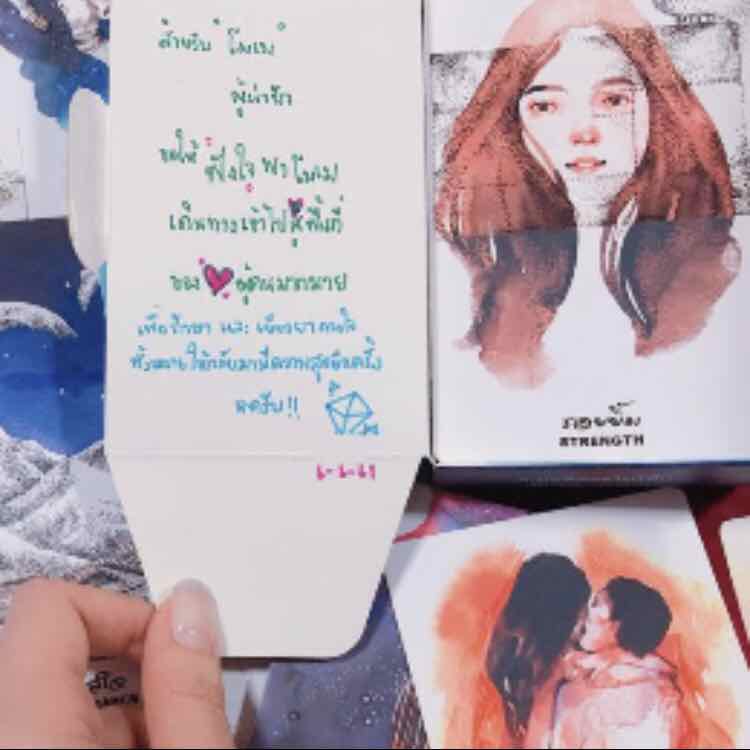 สำหรับ "โมเม"
ผู้น่ารัก
ขอให้ พึ่งใจ พา โมเม
เดินทางเข้าไปสู่พื้นที่
ของ ผู้คนมากมาย
เพื่อรักษา และ เยียวยา
ทั้งหลาย ให้กลับมามีความสุขอีกครั้ง
นะครับ !!
6-6-61
รอยยิ้ม
STRENGTH